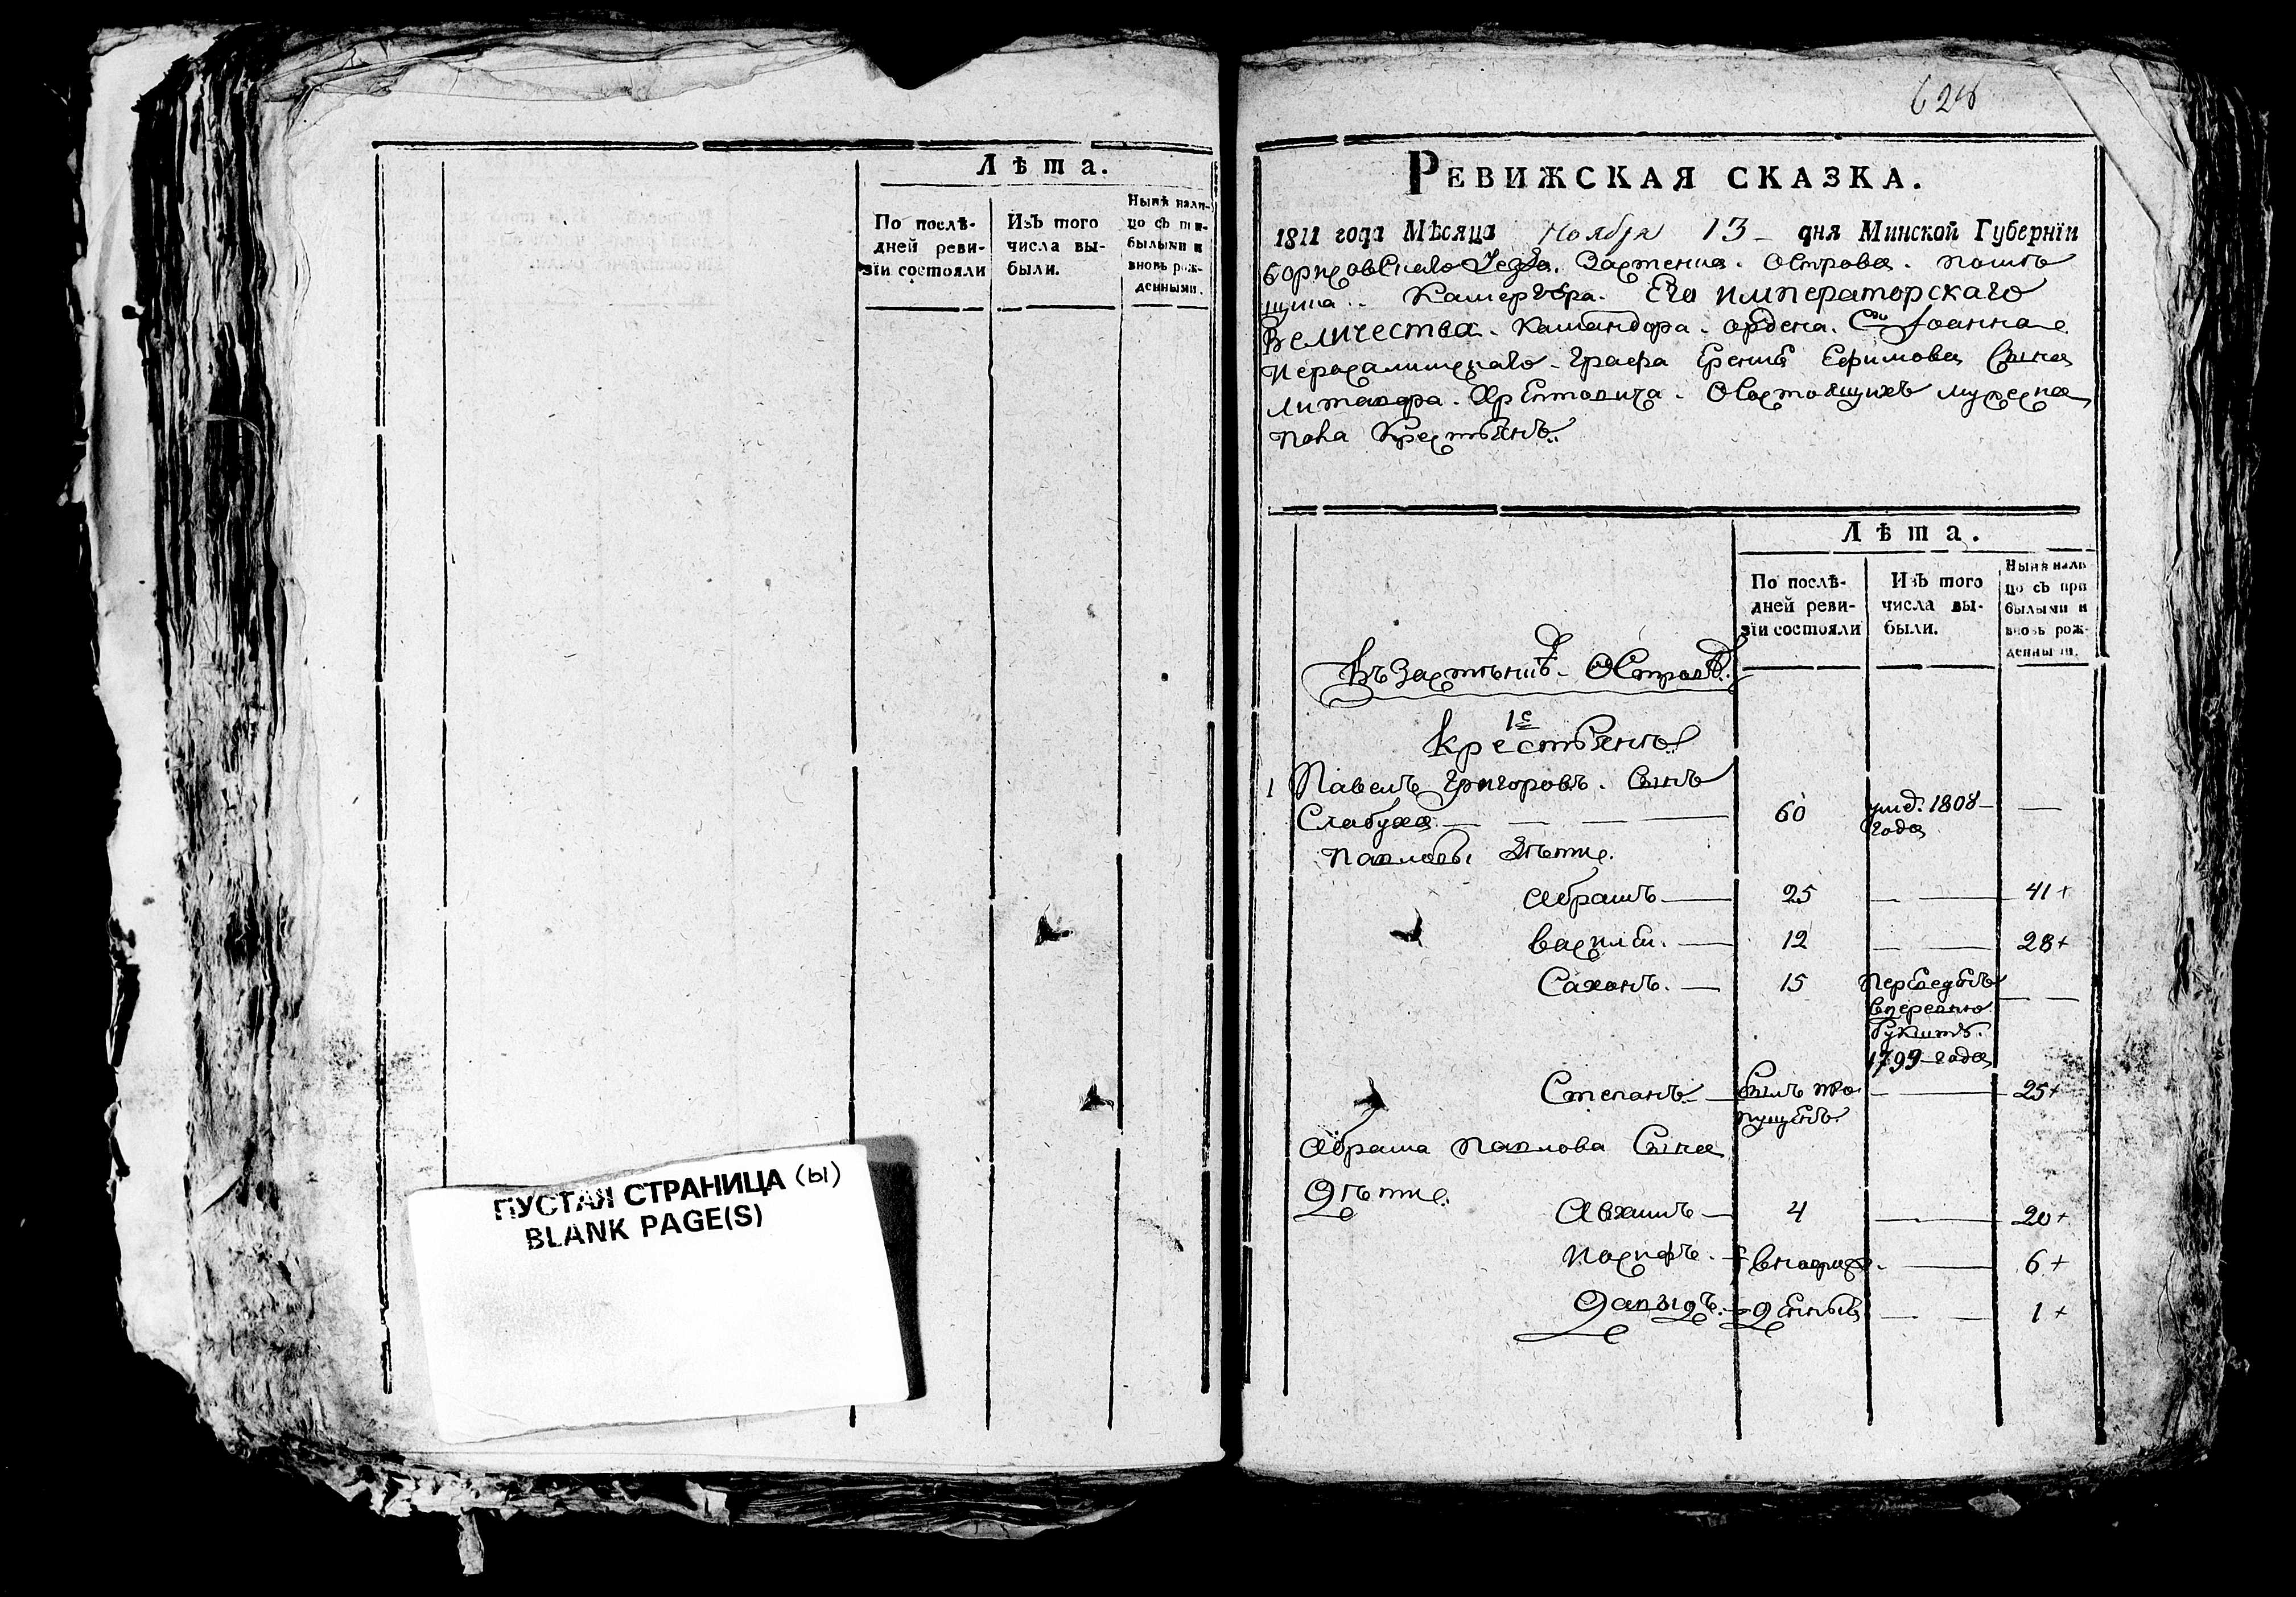 Лѣта.
По послѣ-
дней реви-
зїи состояли
Изъ того
числа вы-
были.
Нынѣ нали-
цо съ при-
былыми и
вновь рож-
денными.
ПУСТАЯ СТРАНИЦА (ы)
BLANK PAGE(S)
РЕВИЖСКАЯ СКАЗКА.
1811 года Мѣсяца Ноября 13 - дня Минской Губернїи
Борисовскаго Уезда. Застенка. Острова. помѣ
щика. Камергера. Его императорскаго
Величества. Командора. ордена. Іоанна
Иерусалимскаго. Графа Ефимова Сына
Литавора. Хрептовича. Осостоящихъ мужеска
пола Крестьянъ.
Лѣта.
По послѣ-
дней реви-
зїи состояли
Изъ того
числа вы-
были.
Нынѣ нали
цо съ при
былыми и
вновь рож-
денными.
Въ Застѣнкѣ. Островѣ.
1е
Крестьянъ
1 Павелъ Григоровъ. Сынъ
Слабуха — 60 умд. 1808 — года —
Павловы дѣти.
Абрамъ — 25 — 41 +
Василей. — 12 — 28 +
Сахонъ. — 15 Переведенъ
1799 года —
Степанъ — былъ про
пущенъ — 25 +
Абрама Павлова Сына
Дѣти.
Авхимъ — 4 — 20 +
Иосифъ. — 6 +
Давыдъ. — 1 +